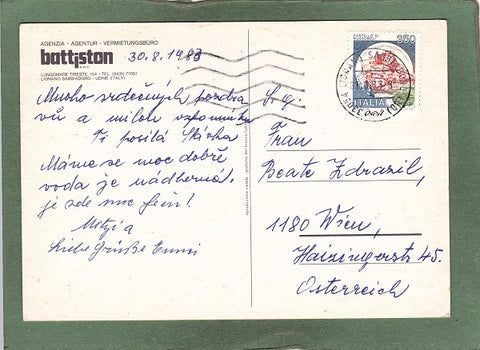 AGENZIA - AGENTUR - VERMIETUNGSBÜRO
battiston
s.n.c.
LUNGOMARE TRIESTE, 164 - TEL. (0431) 71051
LIGNANO SABBIADORO - UDINE (ITALY)
30.8.1983
Mnoho srdečných pozdra
vů a milou vzpomínku
Ti posílá Slávka
Máme se moc dobře
voda je nádherná.
je zde moc fein!
Mitzi a
Liebe Grüße Emmi
350
ITALIA
Frau
Beate Zdrazil,
1180 Wien,
Haizingerstr 45.
Österreich